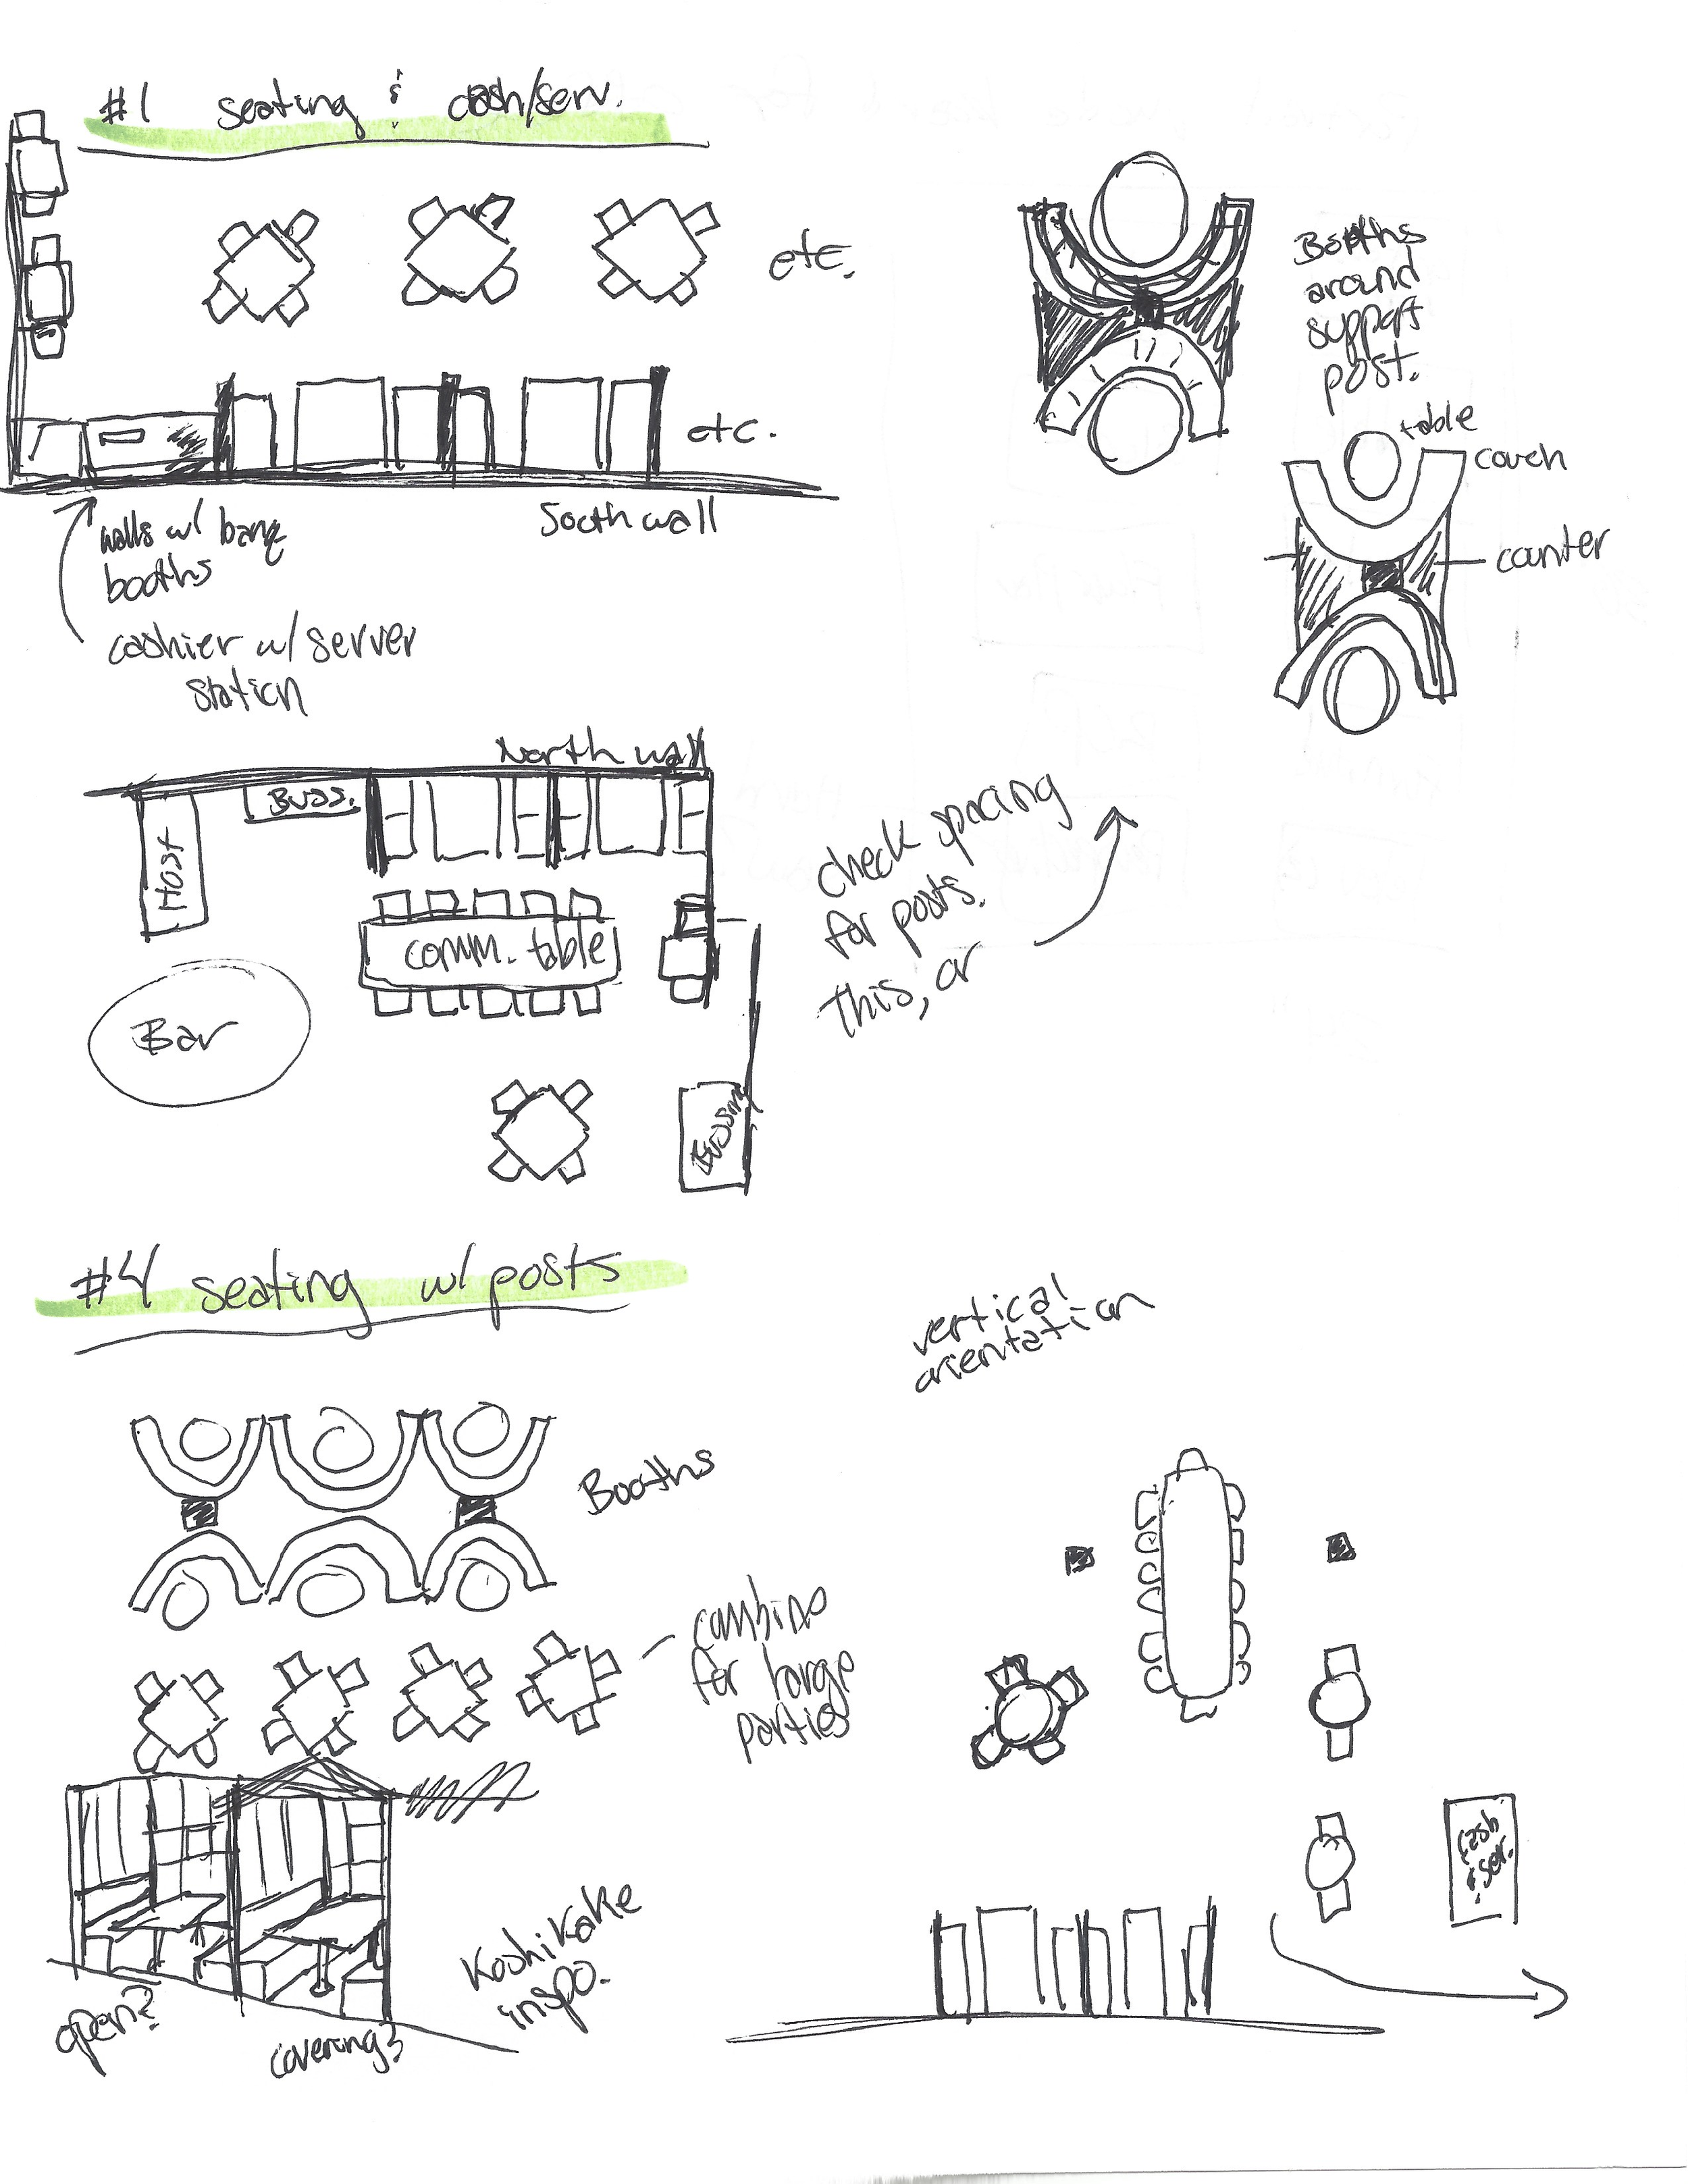 #1 seating & cash/serv.
etc.
etc.
walls w/ banq
booths
South wall
cashier w/ server
station
Booths
around
support
post.
table
couch
counter
North wall
Buss.
Host
comm. table
Bar
Bussing
check spacing
for posts.
this, or
#4 seating w/ posts
vertical
orientation
Booths
combine
for large
parties
Cash
& Ser.
Koshikake
inspo.
open?
covering?